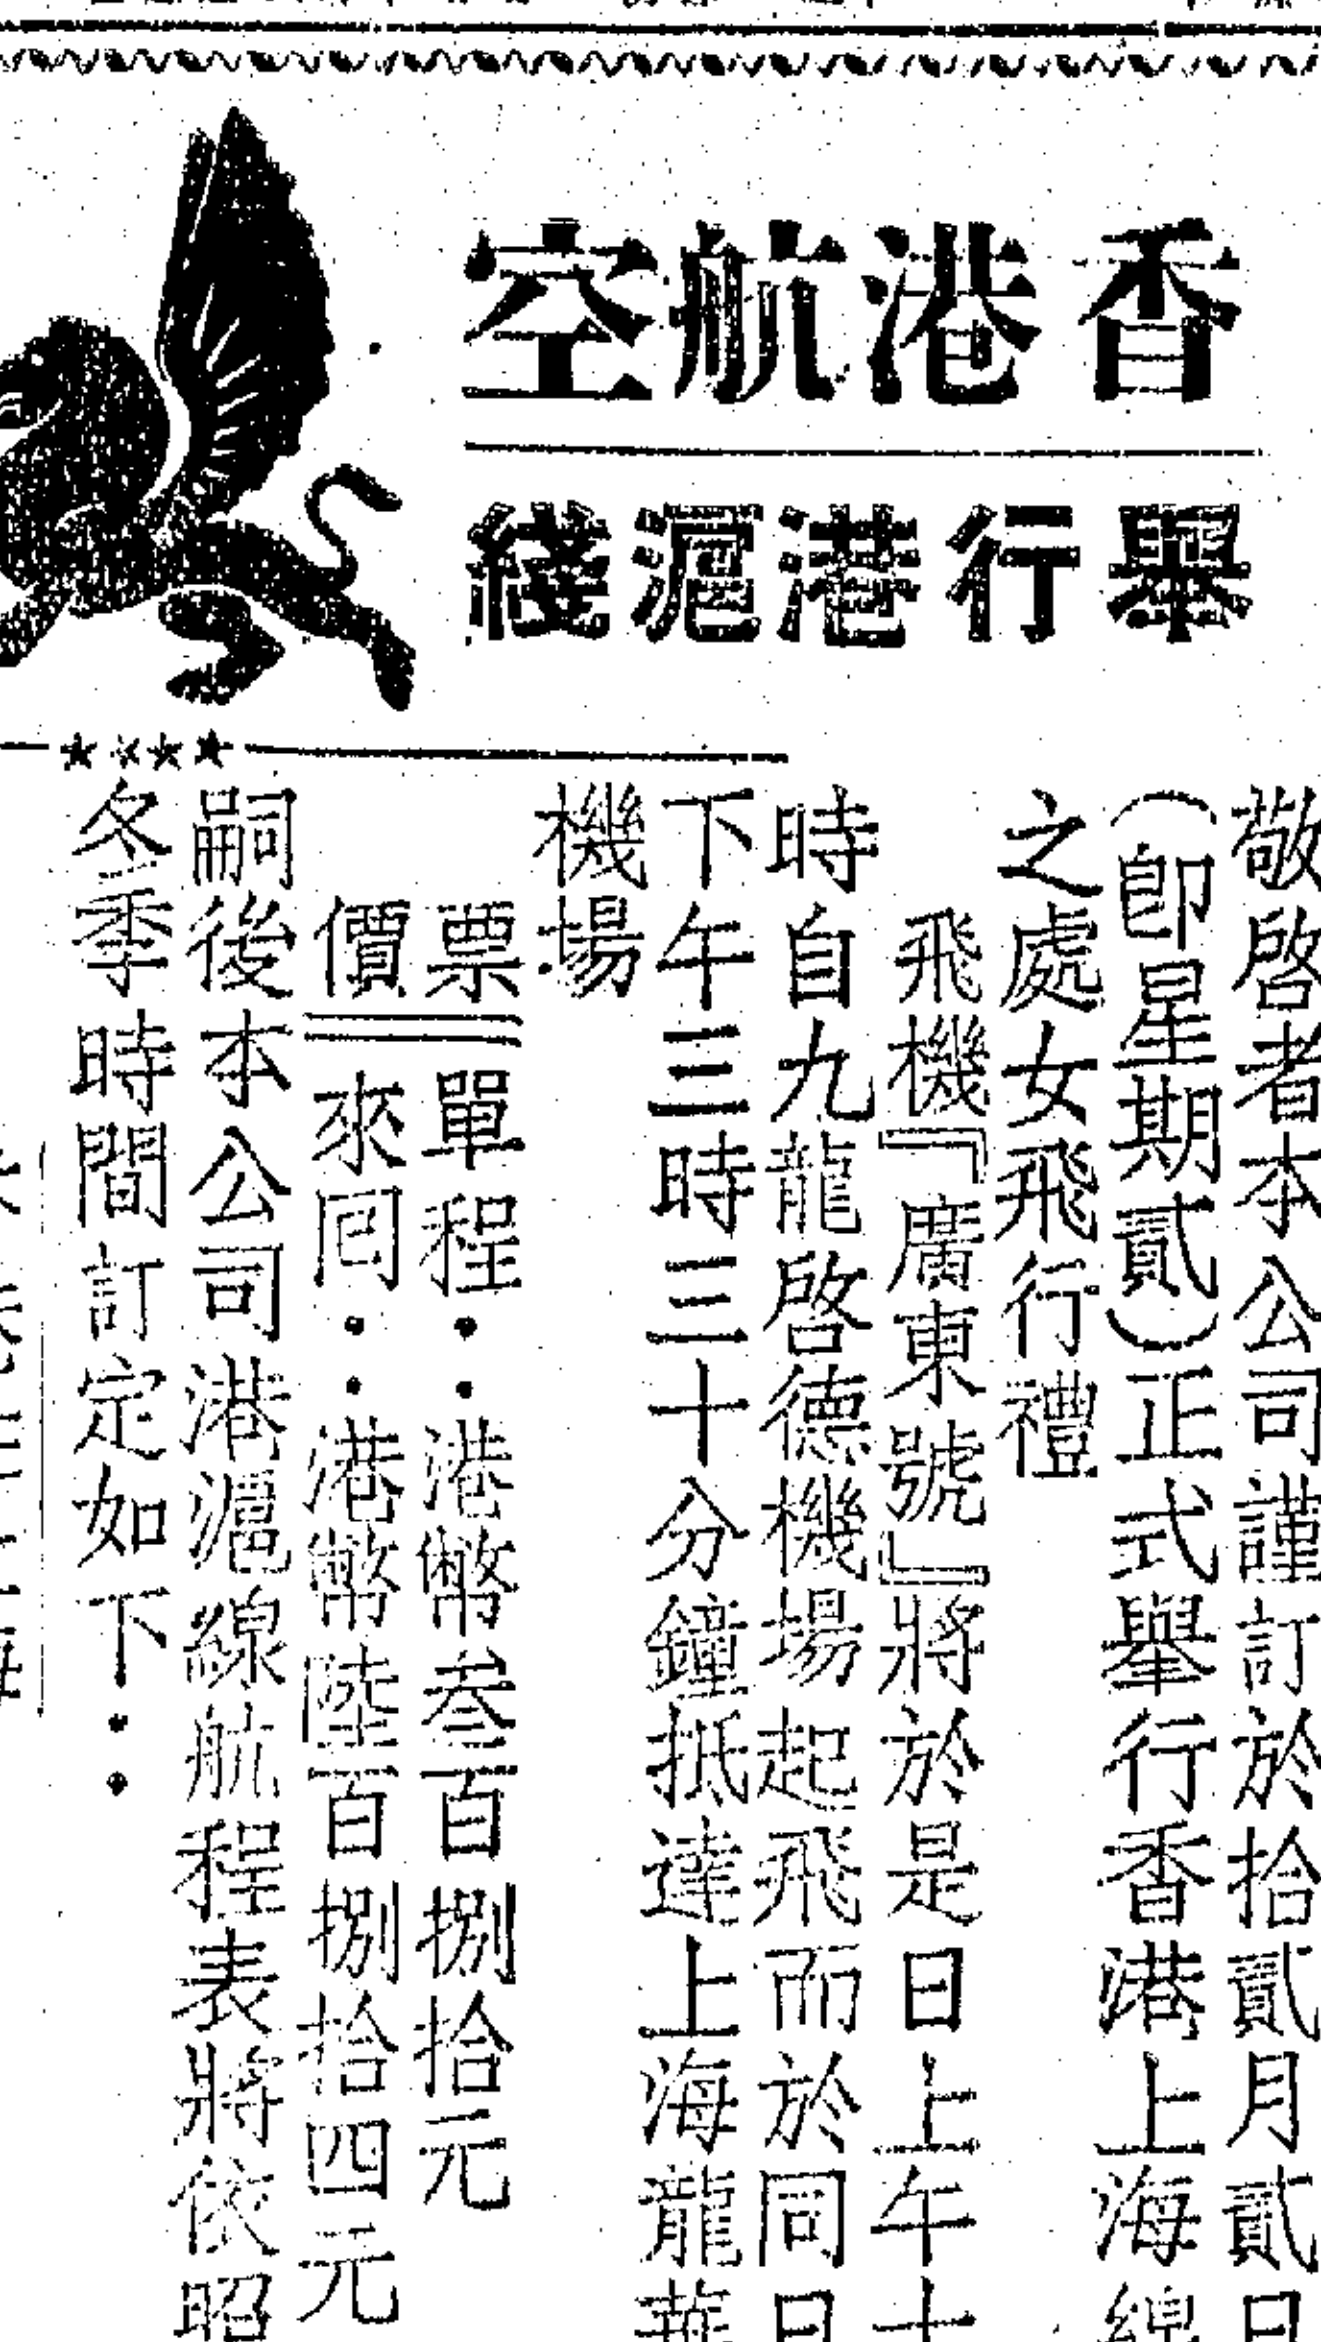 香港航空
舉行港滬綫
敬啓者本公司謹訂於拾貳月貳日
(卽星期貳)正式舉行香港上海線
之處女飛行禮
飛機『廣東號』將於是日上午十
時自九龍啓德機場起飛而於同日
下午三時三十分鐘抵達上海龍華
機場
票 單程：港幣叁百捌拾元
價 來囘：港幣陸百捌拾四元
嗣後本公司港滬線航程表將依照
冬季時間訂定如下：